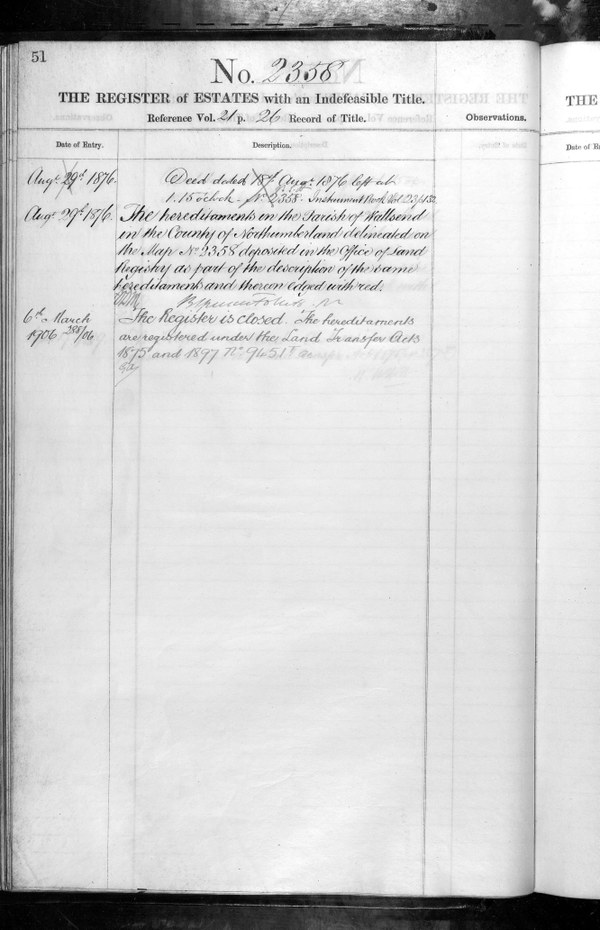 51
No. 2358
THE REGISTER of ESTATES with an Indefeasible Title.
Reference Vol. 21 p. 26 Record of Title.
Observations.
Date of Entry.
Description.
Augt. 29th 1876.
Deed dated 18th Augt. 1876 left at
1.15 o'clock. No. 2358. Instrument Book Vol 23/
Augt. 29th 1876.
The hereditaments in the Parish of Wallsend
in the County of Northumberland delineated on
the Map No 2358 deposited in the Office of Land
Registry as part of the description of the same
hereditaments and thereon edged with red.
6th March
1906 288/06
The Register is closed. The hereditaments
are registered under the Land Transfer Acts
1875 and 1897 No. 94515
THE
Date of E